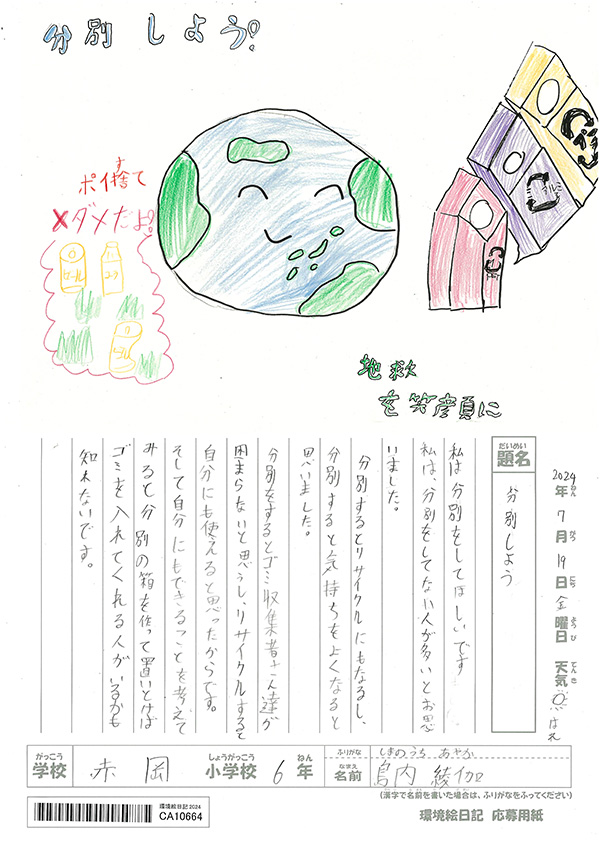 分別しよう!
ポイ捨て
す
×ダメだよ!
ビール
地救
を笑彦頁に
2024年7月19日金曜日 天気 はれ
ねん がつ にち ようび てんき
だいめい
題名
分別しよう
私は分別をしてほしいです
私は、分別をしてない人が多いとお思
いました。
分別するとリサイクルにもなるし、
分別すると気持ちをよくなると
思いました。
分別をするとゴミ収集者さん達が
困まらないと思うし、リサイクルすると
自分にも使えると思ったからです。
そして自分にもできることを考えて
みると分別の箱を作って置いとけば
ゴミを入れてくれる人がいるかも
知れないです。
がっこう しょうがっこう ねん
学校 赤岡 小学校 6年
ふりがな しまのうち あやか
なまえ
名前 島内 綾伽
(漢字で名前を書いた場合は、ふりがなをふってください)
環境絵日記2024
CA10664
環境絵日記 応募用紙